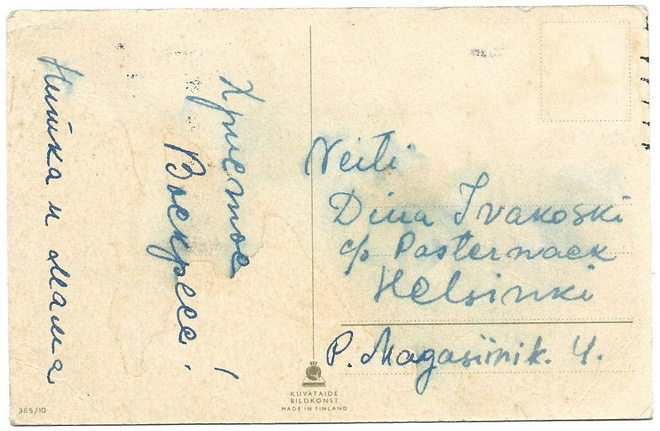 Христос
Воскресе!
Нитка и мама
Neiti
Dina Ivakoski
c/o Pasternack
Helsinki
P. Magasiinik. 4.
KUVATAIDE
BILDKONST
MADE IN FINLAND
365/10